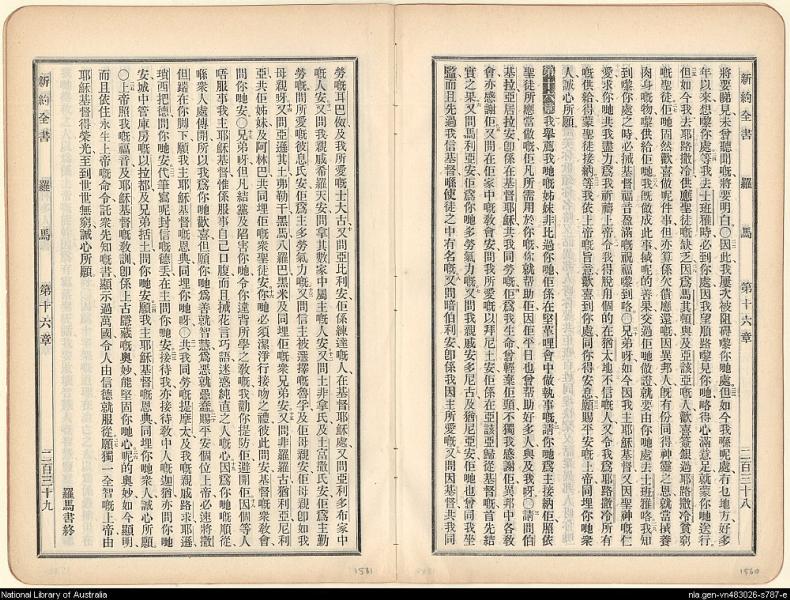 新約全書 羅馬 第十六章 二百三十八
將要睇見未曾聽聞嘅將要明白〇因此我屢次被阻碍嚟你哋處但如今我喺呢處冇乜地方好多
年以來想嚟你處等我去士班雅時必到你處因我望順路嚟見你哋略得心滿意足就蒙你哋送行
但如今我去耶路撒冷供應聖徒嘅缺乏因爲馬其頓與及亞該亞嘅人歡喜簽銀過耶路撒冷貧窮
嘅聖徒佢哋固然歡喜做呢件事但亦算係欠債應還嘅因異邦人既有份同得神靈之恩就當養
肉身嘅物嚟供給佢哋我既做成此事將呢的善果交過佢哋做證就要由你哋處去士班雅咯我知
到嚟你處之時必將基督福音盈滿嘅祝福嚟到咯〇兄弟呀如今因我主耶穌基督又因聖神嘅仁
愛求你哋共我盡力爲我祈禱上帝令我得脫角個的在猶太地不信嘅人又令我爲耶路撒冷所有
嘅供給得蒙聖徒接納等我依上帝嘅旨意歡喜到你處同你得安息願賜平安嘅上帝同埋你哋衆
人誠心所願
第十六章 我舉薦我哋嘅姊妹非比過你哋佢係在堅革哩會中做執事嘅請你哋爲主接納佢照依
聖徒所應當做嘅佢凡所需用於你你就幫助佢因佢平日也曾幫助好多人與及我呀〇請問伯
基拉亞居拉安即係在基督耶穌共我同勞嘅佢爲我生命曾輕棄佢頸不獨我感謝佢異邦中各教
會亦感謝佢又問在佢家中嘅教會安問我所愛嘅以拜尼土安佢係在亞該亞歸從基督嘅首先結
實之果又問馬利亞安佢爲你哋多勞氣力嘅又問我親戚安多尼古及猶尼亞安佢哋也曾同我坐
監而且先過我信基督喺使徒之中有名嘅又問暗伯利安即係我因主所愛嘅又問因基督共我同
勞嘅耳巴俶及我所愛嘅士大古又問亞比利安佢係練達嘅人在基督耶穌處又問亞利多布家中
嘅人安又問我親戚希羅天安問拿其數家中屬主嘅人安又問土非拿氏及土富撒氏安佢爲主勤
勞嘅問所愛嘅彼息氏安佢爲主多勞氣力嘅又問信主被選擇嘅魯孚及佢母親安佢母親即如我
母親呀又問亞遜其土弗勒干黑馬八羅巴黑米及同埋佢嘅衆兄弟安又問非羅羅古猶利亞尼利
亞共佢姊妹及阿林巴共同埋佢嘅衆聖徒安你哋必須潔淨行接吻之禮彼此問安基督嘅衆敎會
問你哋安〇兄弟呀但凡結黨及陷害你哋令你違背所學之敎嘅我勸你提防佢避開佢因個等人
唔服事我主耶穌基督惟係服事自己口腹而且將花言巧語迷惑純直之人嘅心因爲你哋嘅順從
喺衆人處傳開所以我爲你哋歡喜但願你哋爲善就智慧爲惡就愚蠢賜平安個位上帝必速將撒
但踏在你脚下願我主耶穌基督嘅恩典同埋你哋呀〇共我同勞嘅提摩太及我嘅親戚路求耶遜
瑣西把德問你哋安代筆寫呢封信嘅德丢在主問你哋安接待我亦接待敎中人嘅迦猶亦問你哋
安城中管庫房嘅以拉都及兄弟括土問你哋安願我主耶穌基督嘅恩典同埋你哋衆人誠心所願
〇上帝照我嘅福音及耶穌基督嘅敎訓即係上古隱藏嘅奧妙能堅固你哋心呢的奧妙如今顯明
而且依住永生上帝嘅命令託衆先知嘅書顯示過萬國令人由信德就服從願獨一全智嘅上帝由
耶穌基督得榮光至到世世無窮誠心所願
羅馬書終
新約全書 羅馬 第十六章 二百三十九
1581
1580
National Library of Australia
nla.gen-vn483026-s787-e